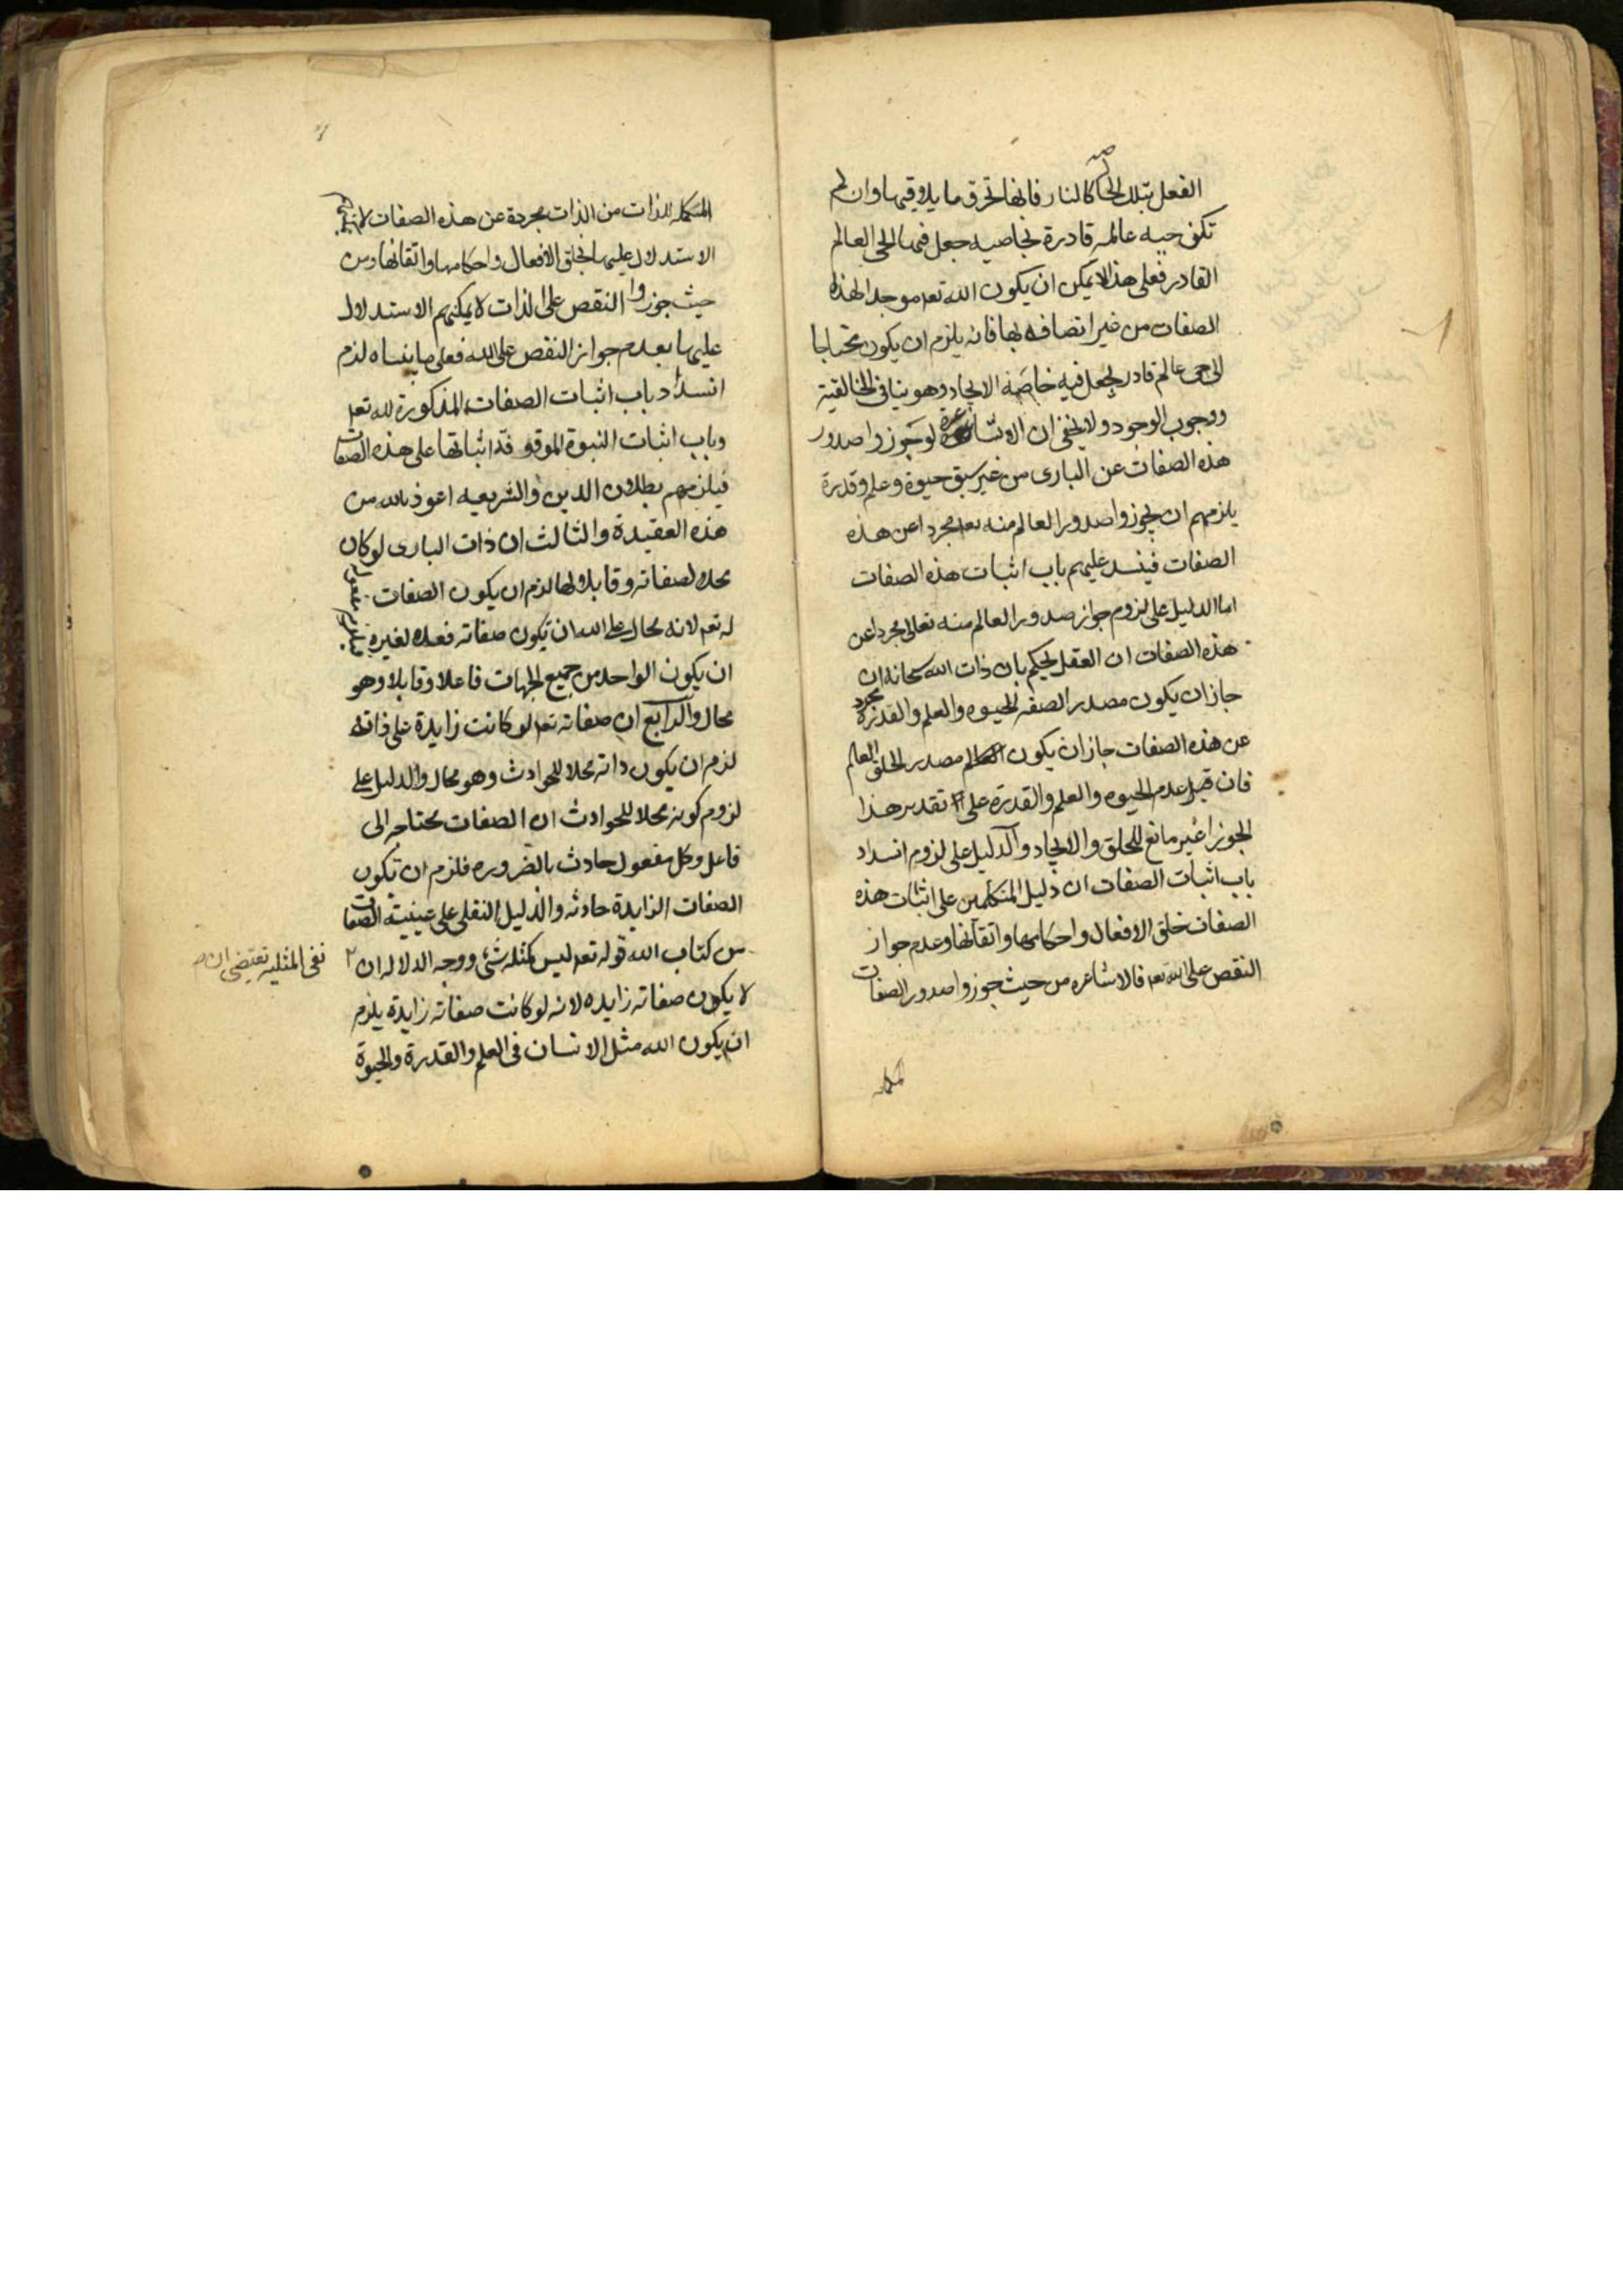 الفعل بتلك الخاصه كالنار فانها تحرق ما يلاقيها وان لم
تكن حيه عالمه قادرة بخاصيه جعل فيها الحى العالم
القادر فعلى هذا لا يمكن ان يكون الله تعه موجدا لهذه
الصفات من غير اتصافه بها فانه يلزم ان يكون محتاجا
الى حى عالم قادر يجعل فيه خاصة الايجاد وهو ينافى الخالقية
ووجوب الوجود ولا يخفى ان الاشاعرة لو جوزوا صدور
هذه الصفات عن البارى من غير سبق حيوة وعلم وقدرة
يلزمهم ان يجوزوا صدور العالم منه تعه مجردا عن هذه
الصفات فينسد عليهم باب اثبات هذه الصفات
اما الدليل على لزوم جواز صدور العالم منه تعالى مجردا عن
هذه الصفات ان العقل يحكم بان ذات الله سبحانه ان
جاز ان يكون مصدر الصفة الحيوه والعلم والقدرة مجرد
عن هذه الصفات جاز ان يكون مصدر الخلق العالم
فان قيل عدم الحيوه والعلم والقدرة على تقدير هذا
الجوز اغير مانع للخلق والايجاد والدليل على لزوم انسداد
باب اثبات الصفات ان دليل المتكلمين على اثبات هذه
الصفات خلق الافعال واحكامها واتقانها وعدم جواز
النقص على الله تعه فالاشاعره من حيث جوزوا صدور الصفات
المكمله
المكمله للذات من الذات مجردة عن هذه الصفات لا يمكنهم
الاستدلال عليها بخلق الافعال واحكامها واتقانها ومن
حيث جوزوا النقص على الذات لا يمكنهم الاستدلال
عليها بعدم جواز النقص على الله فعلى ما بيناه لزم
انسداد باب اثبات الصفات المذكورة لله تعه
وباب اثبات النبوة الموقوفة اثباتها على هذه الصفات
فيلزمهم بطلان الدين والشريعه اعوذ بالله من
هذه العقيدة والثالث ان ذات البارى لو كان
محلا لصفاته وقابلا لها لزم ان يكون الصفات مفعول
له تعه لانه محال على الله ان تكون صفاته فعلا لغيره فيلزم
ان يكون الواحد من جميع الجهات فاعلا وقابلا وهو
محال والرابع ان صفاته تعه لو كانت زايدة على ذاته
لزم ان يكون ذاته محلا للحوادث وهو محال والدليل على
لزوم كونه محلا للحوادث ان الصفات محتاجه الى
فاعل وكل مفعول حادث بالضروره فلزم ان تكون
الصفات الزايدة حادثه والدليل النقلى على عينية الصفات
من كتاب الله قوله تعه ليس كمثله شئ ووجه الدلاله ان ٢
نفى المثليه تقتضى ان صح
لا يكون صفاته زايده لانه لو كانت صفاته زايدة يلزم
ان يكون الله مثل الانسان فى العلم والقدرة والحيوة